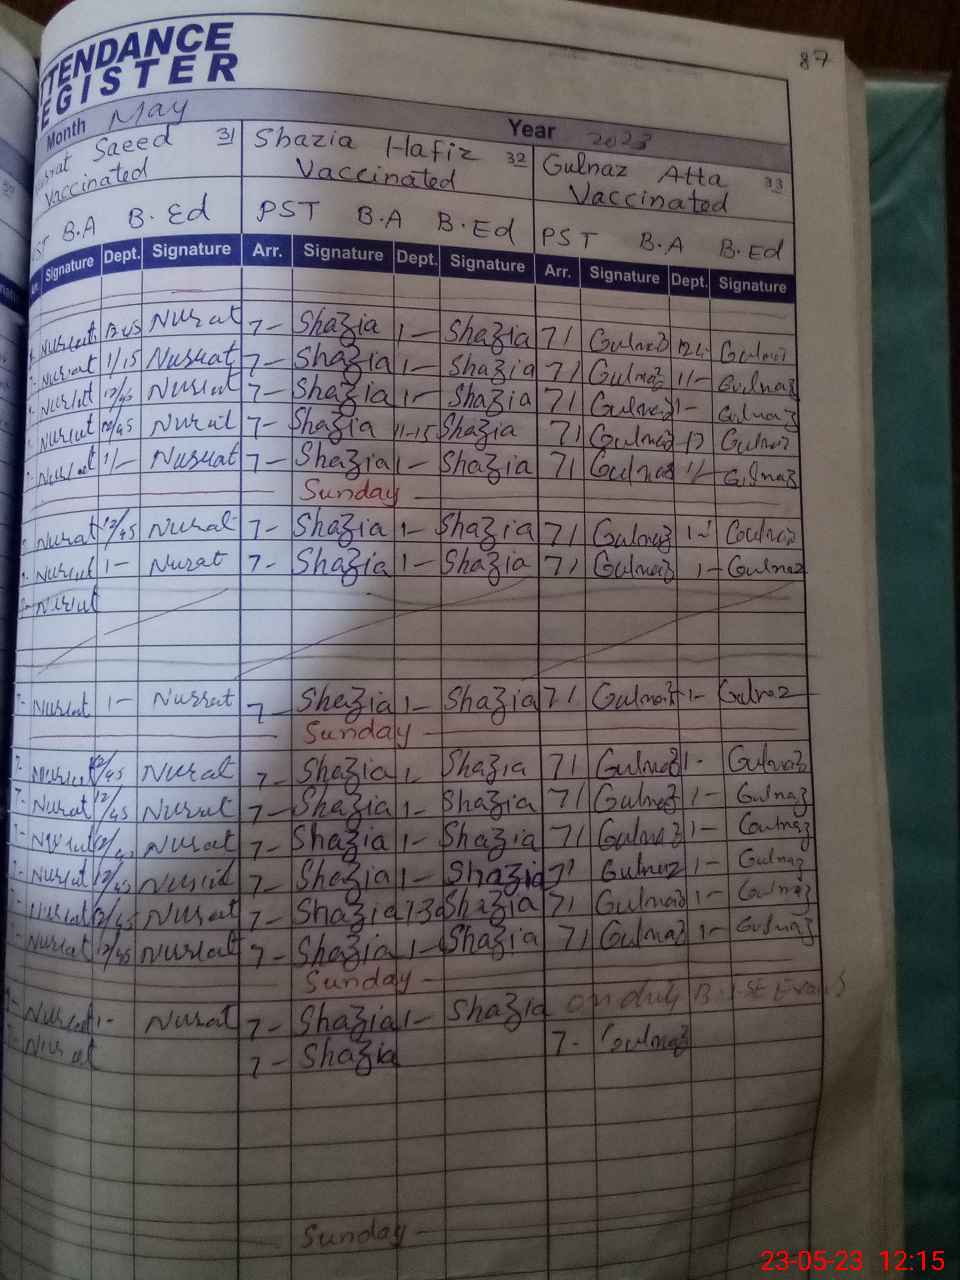 87
TTENDANCE
EGISTER
Month May Year 2023
Saeed 31 Shazia Hafiz 32 Gulnaz Atta 33
Vaccinated Vaccinated Vaccinated
B.A B.Ed PST B.A B.Ed PST B.A B.Ed
Signature Dept. Signature Arr. Signature Dept. Signature Arr. Signature Dept. Signature
Nusrat 7- Shazia 1- Shazia 7/ Gulnaz Gulnaz
Nusrat 1/15 Nusrat 7- Shazia 1- Shazia 7/ Gulnaz 1/- Gulnaz
Nusrat 12/45 Nusrat 7- Shazia 1- Shazia 7/ Gulnaz 1- Gulnaz
Nusrat Nusrat 7- Shazia 11-15 Shazia 7/ Gulnaz 12 Gulnaz
Nusrat 1/- Nusrat 7- Shazia 1- Shazia 7/ Gulnaz 1/- Gulnaz
Sunday
Nusrat 12/45 Nusrat 7- Shazia 1- Shazia 7/ Gulnaz Gulnaz
7- Nusrat 1- Nusrat 7- Shazia 1- Shazia 7/ Gulnaz 1- Gulnaz
Nusrat
7- Nusrat 1- Nusrat 7- Shazia 1- Shazia 7/ Gulnaz 1- Gulnaz
Sunday
7- Nusrat 12/45 Nusrat 7- Shazia 1- Shazia 7/ Gulnaz 1- Gulnaz
7- Nusrat 12/45 Nusrat 7- Shazia 1- Shazia 7/ Gulnaz 1- Gulnaz
7- Nusrat Nusrat 7- Shazia 1- Shazia 7/ Gulnaz 1- Gulnaz
Nusrat 12/45 Nusrat 7- Shazia 1- Shazia 7/ Gulnaz 1- Gulnaz
Nusrat 12/45 Nusrat 7- Shazia Shazia 7/ Gulnaz 1- Gulnaz
Nusrat 12/45 Nusrat 7- Shazia 1- Shazia 7/ Gulnaz 1- Gulnaz
Sunday
Nusrat 1- Nusrat 7- Shazia 1- Shazia on duty
Nusrat 7- Shazia 7- Gulnaz
Sunday
23-05-23 12:15